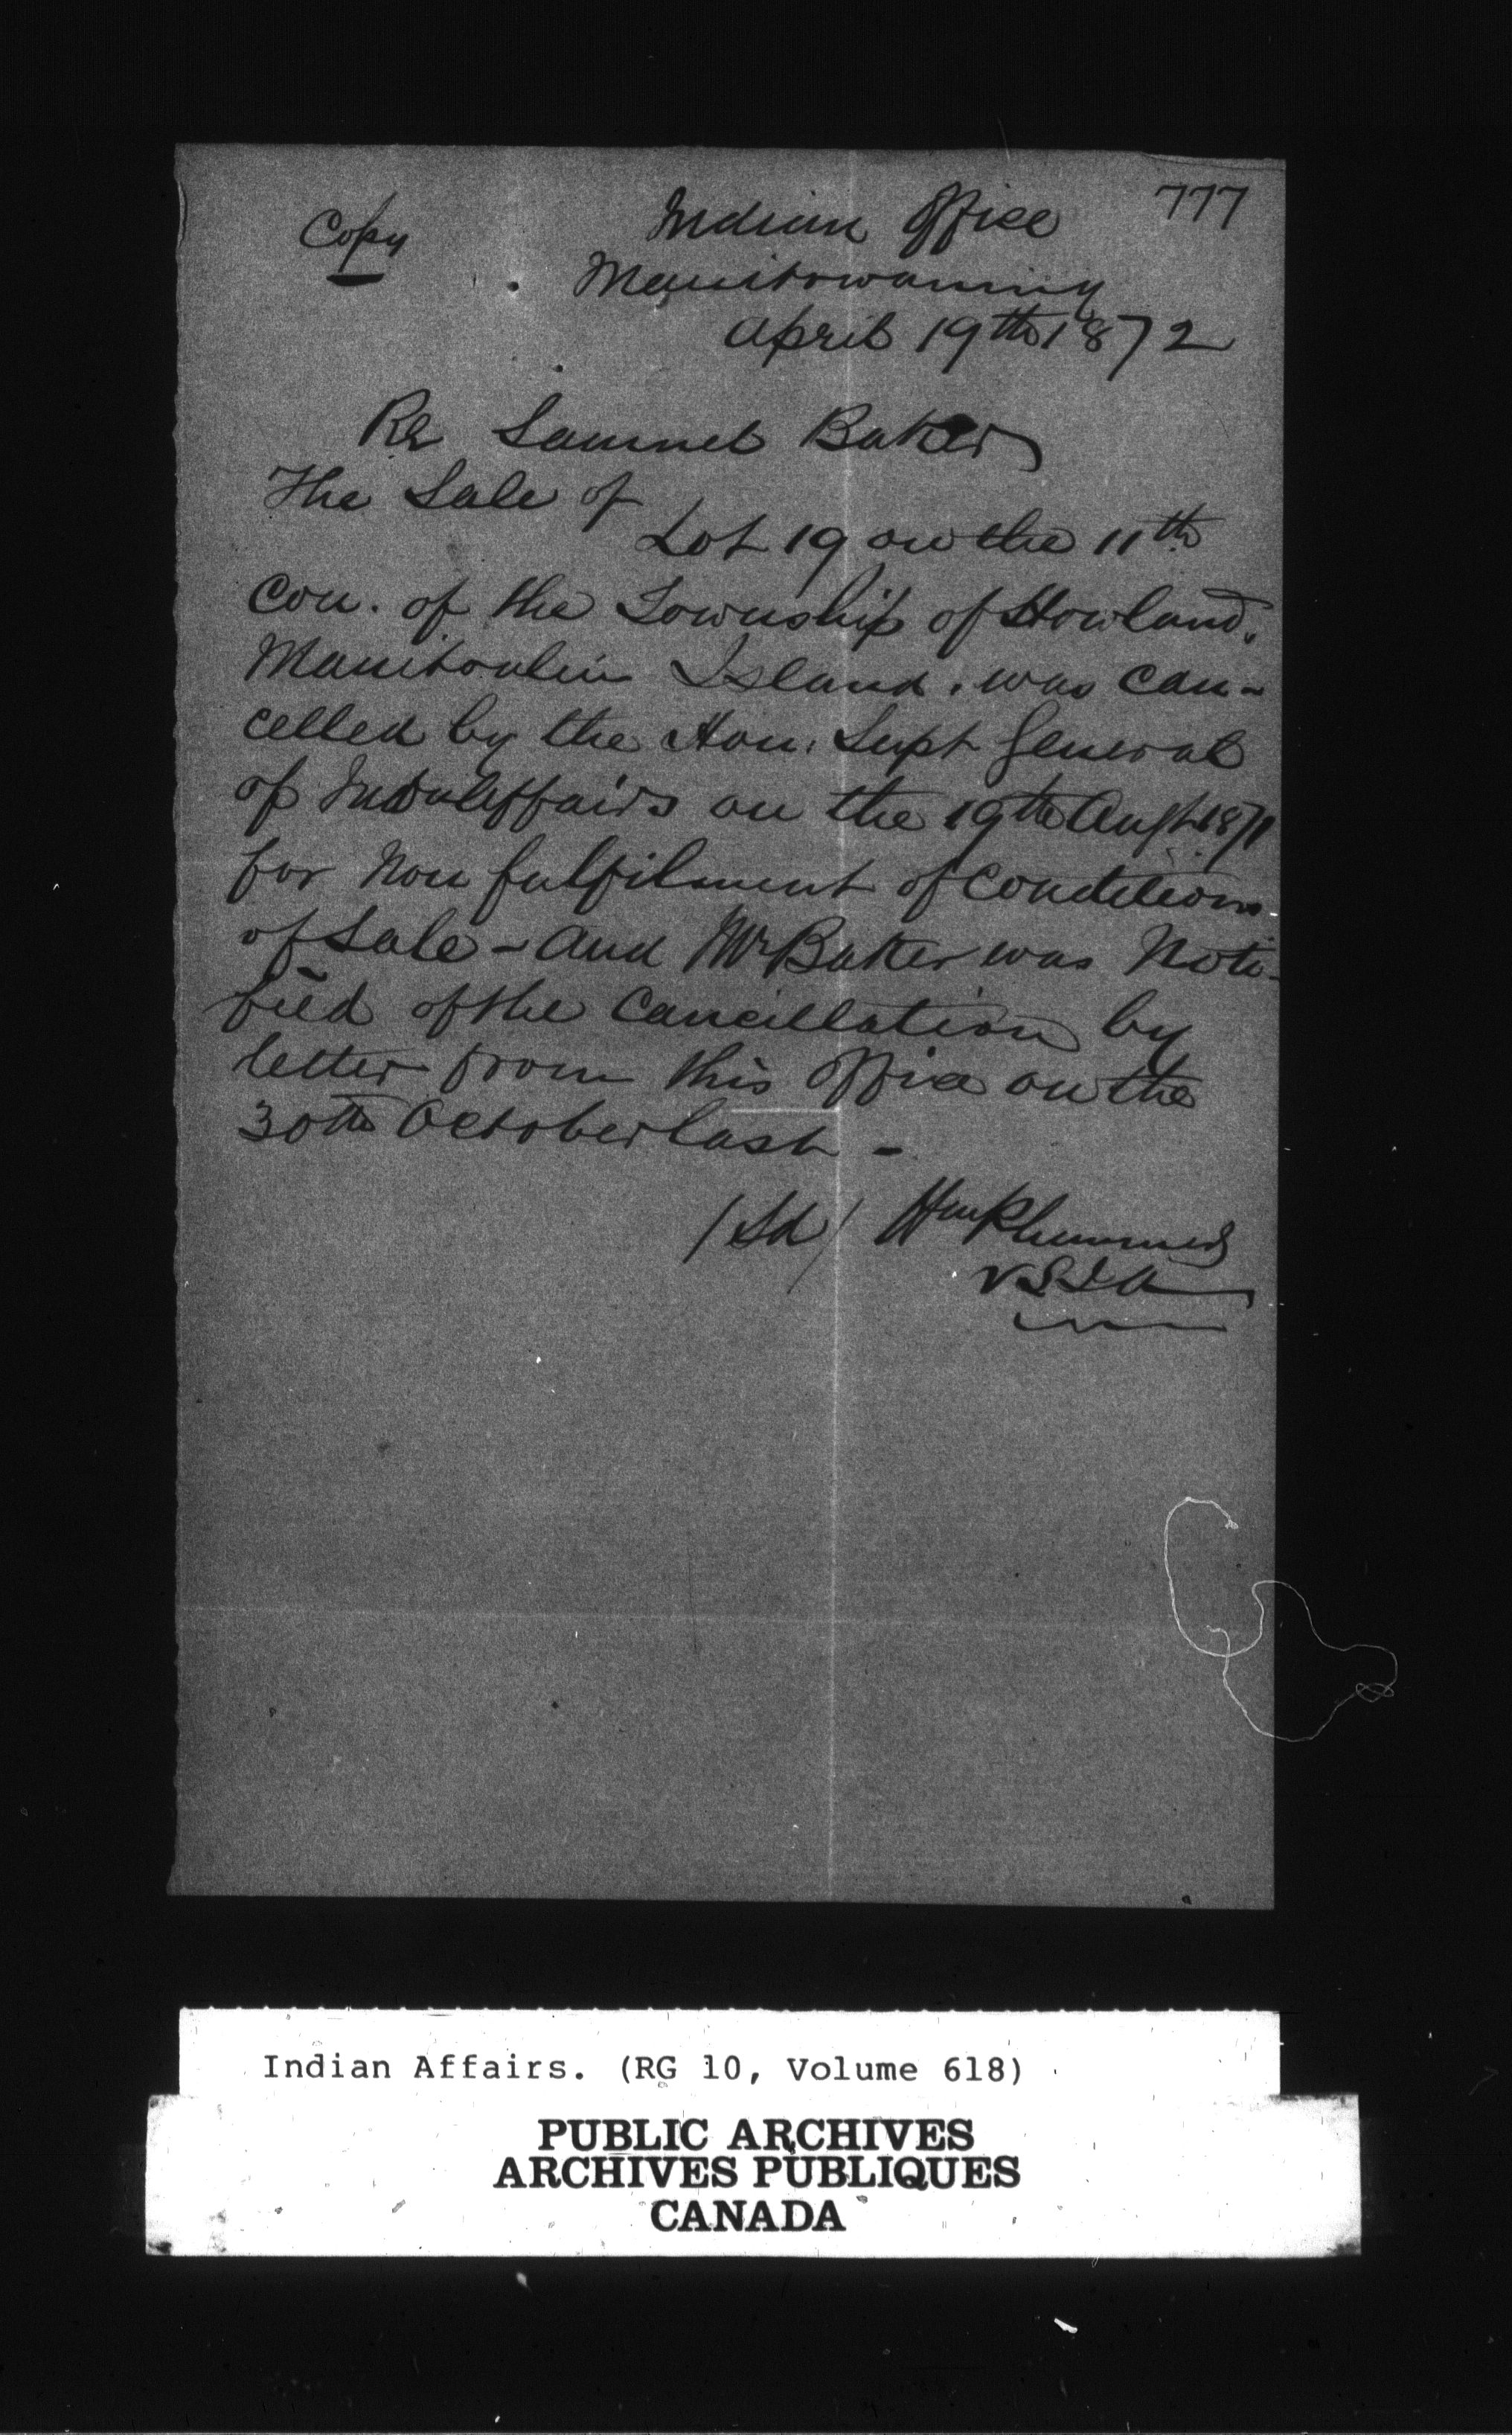 777
Copy
Indian Office
Manitowaning
April 19th 1872
Re Samuel Baker
The Sale of
Lot 19 on the 11th
Con. of the Township of Howland,
Manitoulin Island, was can-
celled by the Hon. Supt General
of Indn Affairs on the 19th Augt 1871
for non fulfilment of conditions
of Sale - and Mr Baker was Noti-
fied of the Cancellation by
letter from this Office on the
30th October last -
(Sd) Wm Plummer
V.S.I.A
Indian Affairs. (RG 10, Volume 618)
PUBLIC ARCHIVES
ARCHIVES PUBLIQUES
CANADA